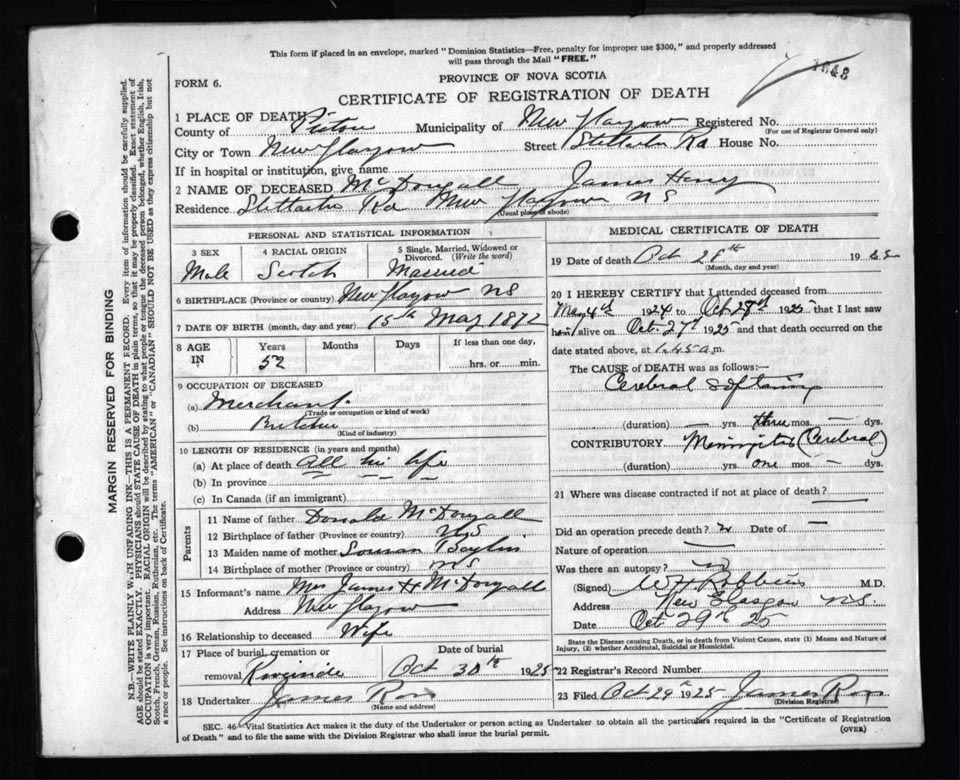 This form if placed in an envelope, marked "Dominion Statistics—Free, penalty for improper use $300," and properly addressed
will pass through the Mail "FREE."
1643
FORM 6.
PROVINCE OF NOVA SCOTIA
CERTIFICATE OF REGISTRATION OF DEATH
1 PLACE OF DEATH
County of Pictou Municipality of New Glasgow Registered No.
(For use of Registrar General only)
City or Town New Glasgow Street Stellarton Rd House No.
If in hospital or institution, give name
2 NAME OF DECEASED McDougall James Henry
Residence Stellarton Rd New Glasgow NS
(Usual place of abode)
PERSONAL AND STATISTICAL INFORMATION
3 SEX 4 RACIAL ORIGIN 5 Single, Married, Widowed or
Divorced. (Write the word)
Male Scotch Married
6 BIRTHPLACE (Province or country) New Glasgow NS
7 DATE OF BIRTH (month, day and year) 15th May 1872
8 AGE IN Years Months Days If less than one day,
52 hrs. or min.
9 OCCUPATION OF DECEASED
(a) Merchant
(Trade or occupation or kind of work)
(b) Butcher
(Kind of industry)
10 LENGTH OF RESIDENCE (in years and months)
(a) At place of death all his life
(b) In province
(c) In Canada (if an immigrant)
Parents
11 Name of father Donald McDougall
12 Birthplace of father (Province or country) NS
13 Maiden name of mother
14 Birthplace of mother (Province or country) NS
15 Informant's name Mrs James H McDougall
Address New Glasgow
16 Relationship to deceased Wife
17 Place of burial, cremation or Date of burial
removal Riverside Oct 30th 1925
18 Undertaker James Ross
(Name and address)
MEDICAL CERTIFICATE OF DEATH
19 Date of death Oct 28th 19 25
(Month, day and year)
20 I HEREBY CERTIFY that I attended deceased from
May 4th 1924 to Oct 28th 1925 that I last saw
him alive on Oct 27th 1925 and that death occurred on the
date stated above, at 1.45 a.m.
The CAUSE of DEATH was as follows:—
Cerebral Softening
(duration) — yrs. three mos. — dys.
CONTRIBUTORY Meningitis (Cerebral)
(duration) — yrs. one mos. — dys.
21 Where was disease contracted if not at place of death? —
Did an operation precede death? Date of —
Nature of operation —
Was there an autopsy?
(Signed) W H Robbins M.D.
Address New Glasgow N.S.
Date Oct 29th 25
State the Disease causing Death, or in death from Violent Causes, state (1) Means and Nature of
Injury, (2) whether Accidental, Suicidal or Homicidal.
22 Registrar's Record Number
23 Filed Oct 29th 1925 James Ross
(Division Registrar)
SEC. 46—Vital Statistics Act makes it the duty of the Undertaker or person acting as Undertaker to obtain all the particulars required in the "Certificate of Registration
of Death" and to file the same with the Division Registrar who shall issue the burial permit.
(OVER)
MARGIN RESERVED FOR BINDING
N.B.—WRITE PLAINLY WITH UNFADING INK—THIS IS A PERMANENT RECORD. Every item of information should be carefully supplied.
AGE should be stated EXACTLY. PHYSICIANS should STATE CAUSE OF DEATH in plain terms, so that it may be properly classified. Exact statement of
OCCUPATION is very important. RACIAL ORIGIN will be described by stating to what people or tongue the deceased person belonged, whether English, Irish,
Scotch, French, German, Russian, Ruthenian, etc. The terms "AMERICAN" or "CANADIAN" SHOULD NOT BE USED as they express citizenship but not
a race or people. See instructions on back of Certificate.